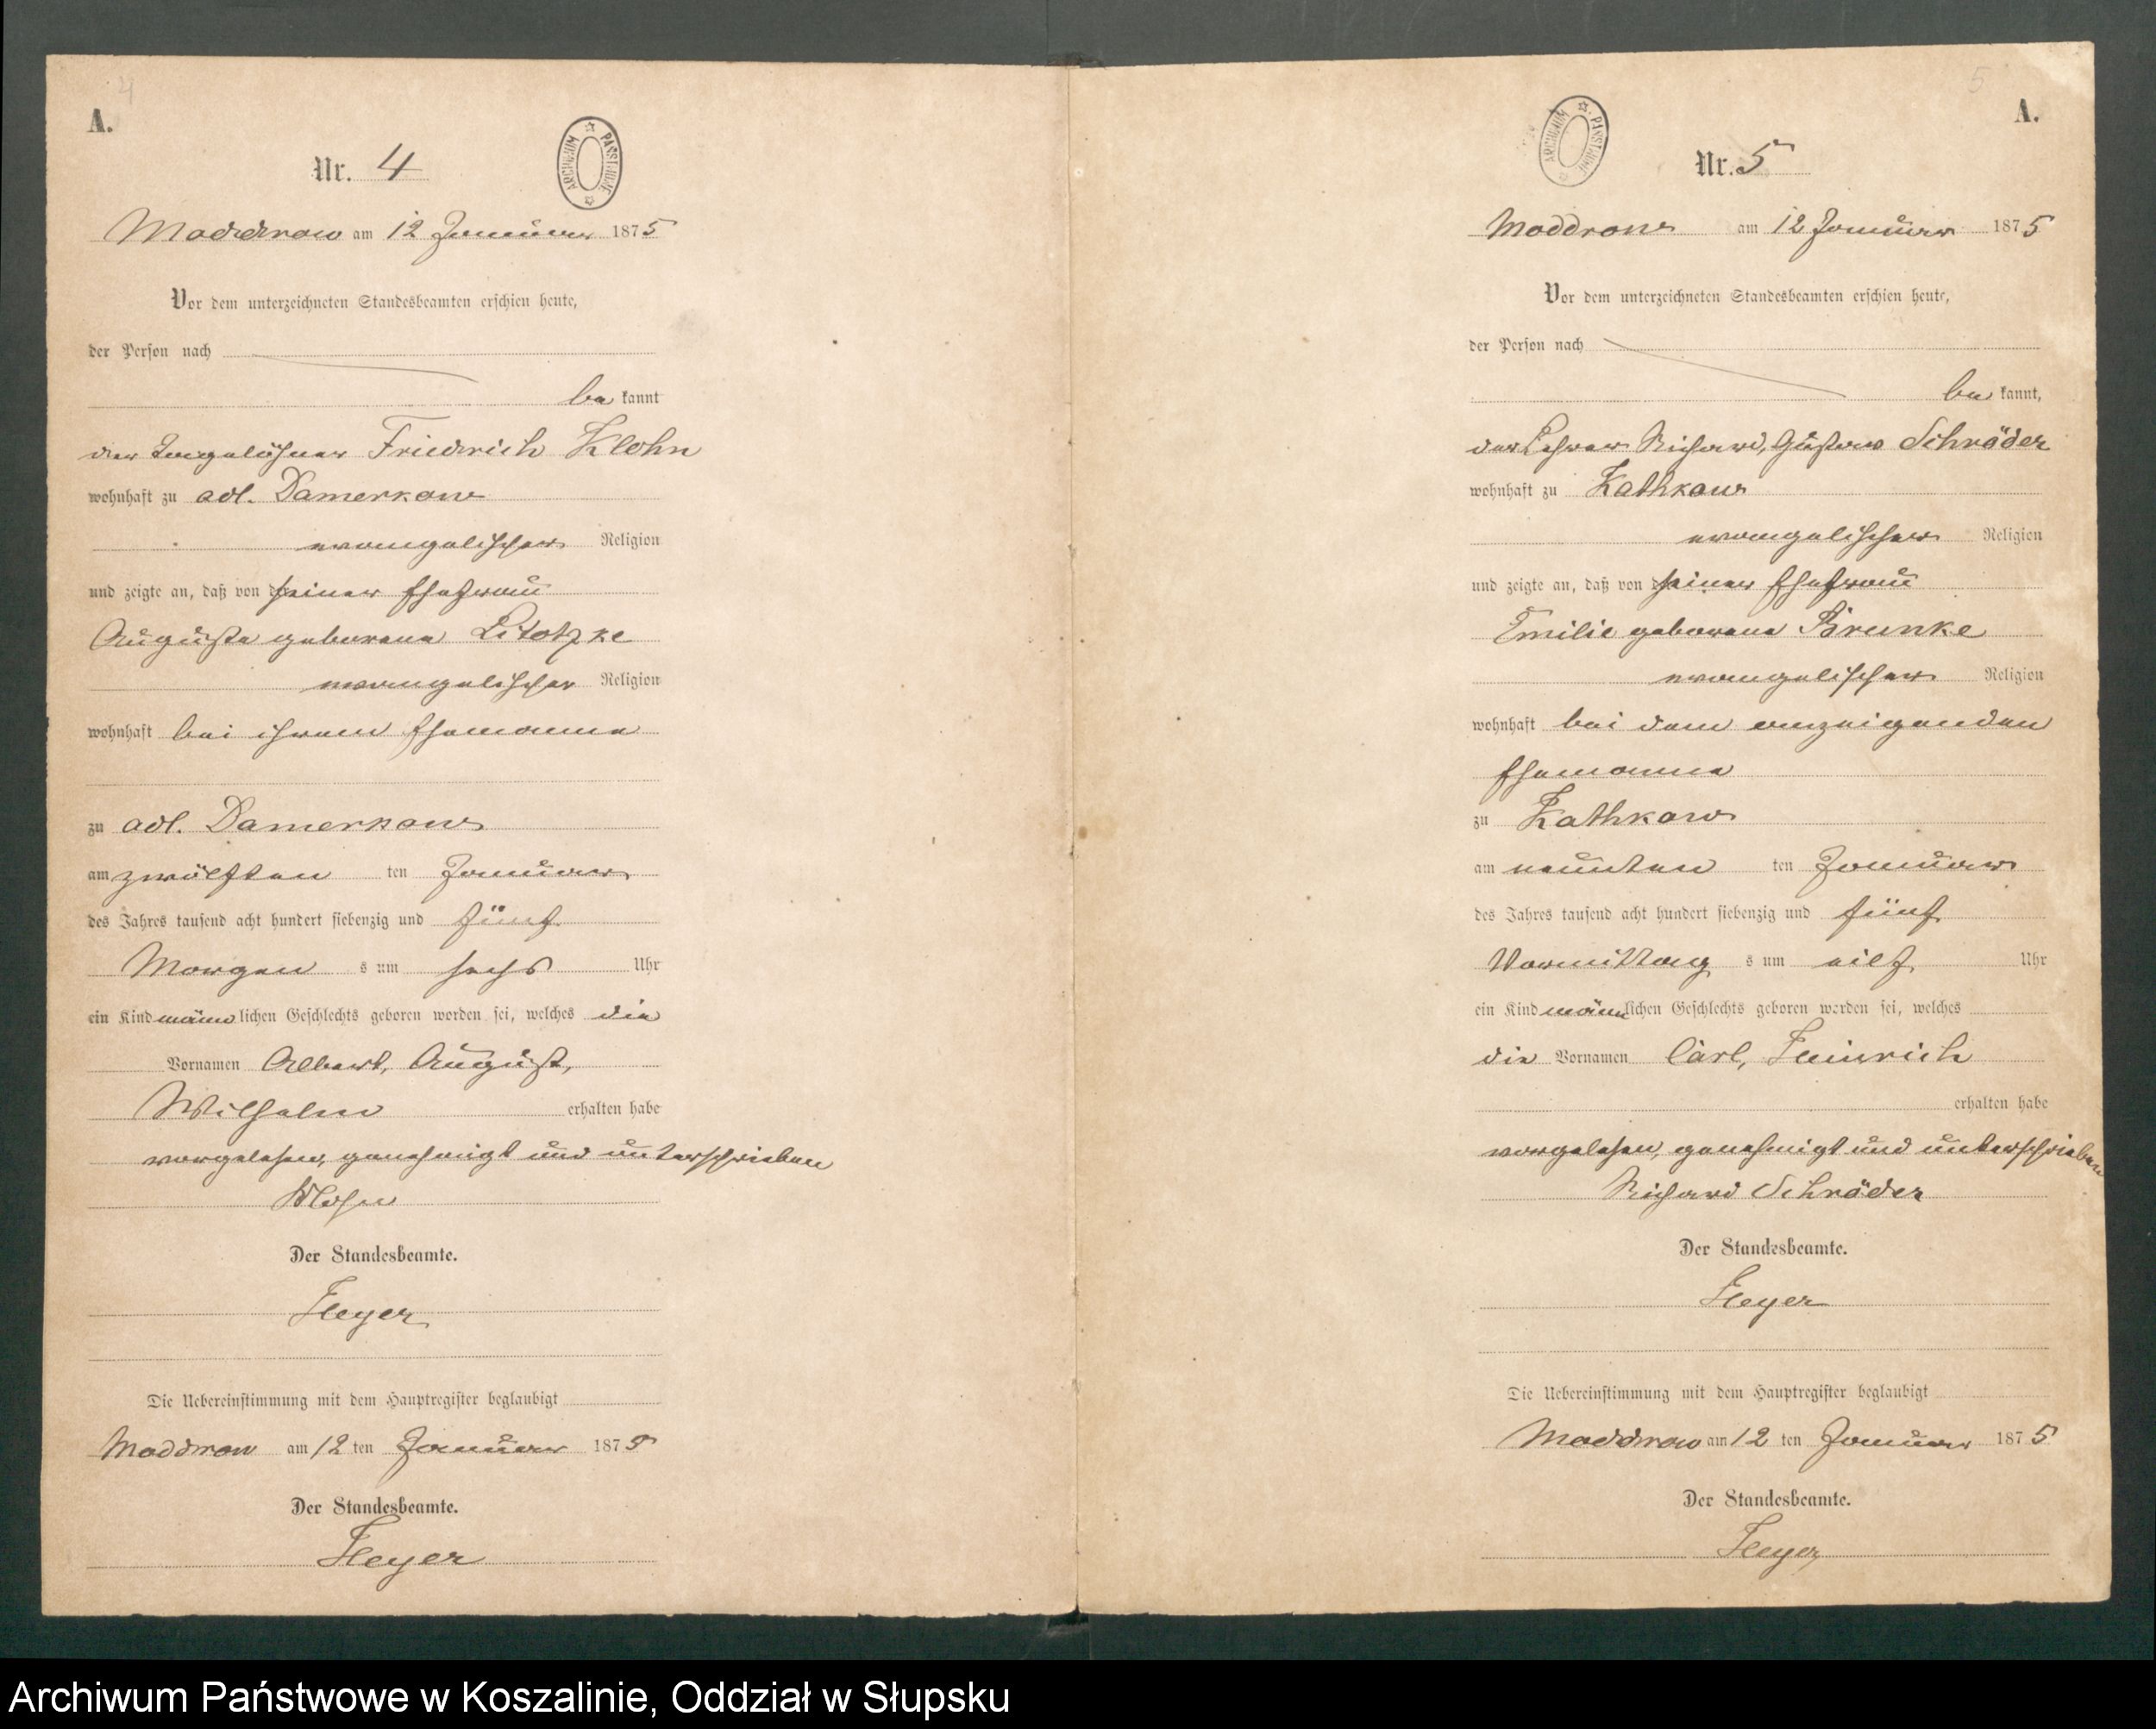 4
A.
Nr. 4
ARCHIWUM PAŃSTWOWE
Moddrow am 12 Januar 1875
Vor dem unterzeichneten Standesbeamten erschien heute,
der Person nach
be kannt
der Tagelöhner Friedrich Klohn
wohnhaft zu adl. Damerkow
evangelischer Religion
und zeigte an, daß von seiner Ehefrau
Auguste geborene Litotzke
evangelischer Religion
wohnhaft bei ihrem Ehemanne
zu adl. Damerkow
am zwölften ten Januar
des Jahres tausend acht hundert siebenzig und fünf
Morgen s um sechs Uhr
ein Kind männlichen Geschlechts geboren worden sei, welches die
Vornamen Albert, August,
Wilhelm erhalten habe
vorgelesen, genehmigt und unterschrieben
Klohn
Der Standesbeamte.
Heyer
Die Uebereinstimmung mit dem Hauptregister beglaubigt
Moddrow am 12 ten Januar 1875
Der Standesbeamte.
Heyer
5
A.
ARCHIWUM PAŃSTWOWE
Nr. 5
Moddrow am 12 Januar 1875
Vor dem unterzeichneten Standesbeamten erschien heute,
der Person nach
be kannt,
der Lehrer Richard, Gustav Schräder
wohnhaft zu Kathkow
evangelischer Religion
und zeigte an, daß von seiner Ehefrau
Emilie geborene Brunke
evangelischer Religion
wohnhaft bei dem anzeigenden
Ehemanne
zu Kathkow
am neunten ten Januar
des Jahres tausend acht hundert siebenzig und fünf
Vormittag s um eilf Uhr
ein Kind männlichen Geschlechts geboren worden sei, welches
die Vornamen Carl, Heinrich
erhalten habe
vorgelesen, genehmigt und unterschrieben
Richard Schräder
Der Standesbeamte.
Heyer
Die Uebereinstimmung mit dem Hauptregister beglaubigt
Moddrow am 12 ten Januar 1875
Der Standesbeamte.
Heyer
Archiwum Państwowe w Koszalinie, Oddział w Słupsku